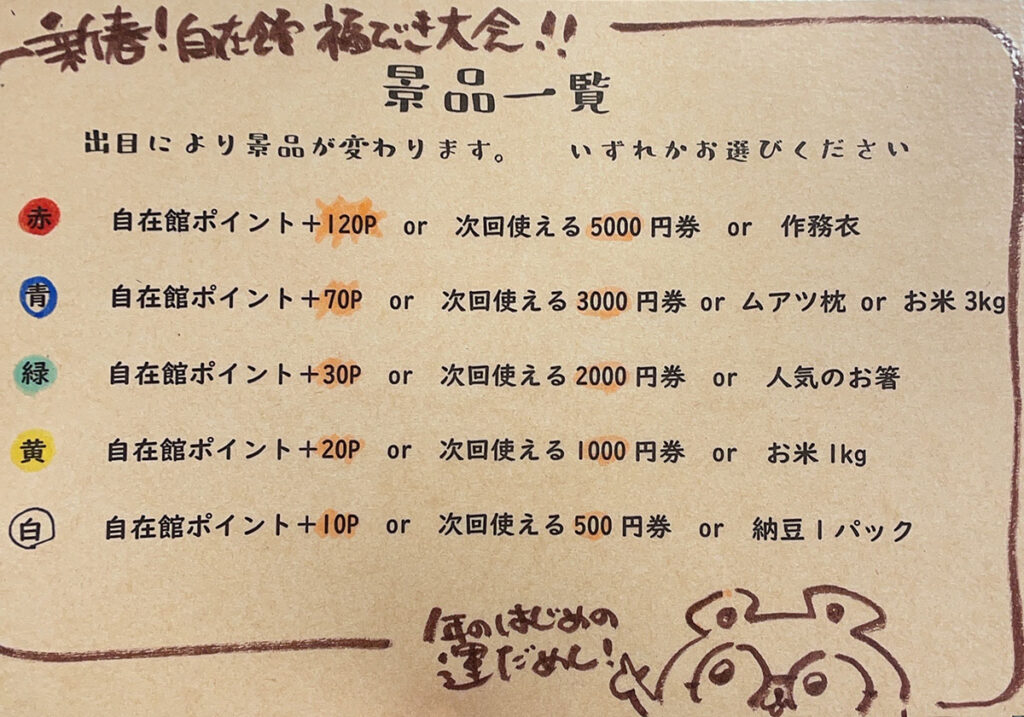 新春!自在館 福びき大会!!
景品一覧
出目により景品が変わります。 いずれかお選びください
赤 自在館ポイント+120P or 次回使える5000円券 or 作務衣
青 自在館ポイント+70P or 次回使える3000円券 or ムアツ枕 or お米3kg
緑 自在館ポイント+30P or 次回使える2000円券 or 人気のお箸
黄 自在館ポイント+20P or 次回使える1000円券 or お米1kg
白 自在館ポイント+10P or 次回使える500円券 or 納豆1パック
1年のはじめの
運だめし!